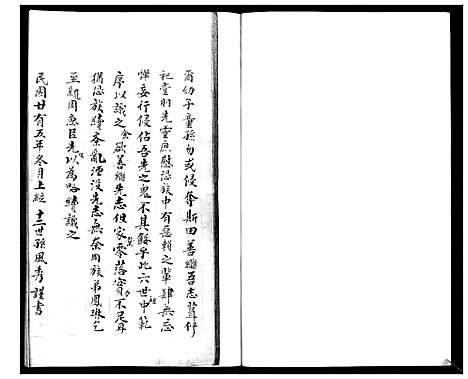 爾幼子童孫勿或侵奪斯田善繼吾志葺修
祀堂羽先靈庶慰恐族中有無賴之輩肆無忌
憚妄行侵佔吾先之鬼不其餒乎此六世祖中範
序以識之余欲善繼先志但家業零落實力不足耳
猶恐族續紊亂湮沒先志無奈同族弟鳳琳乞
至親周惠臣先生以為略續識之
民國廿有五年冬月上綻十二世孫鳳秀謹書